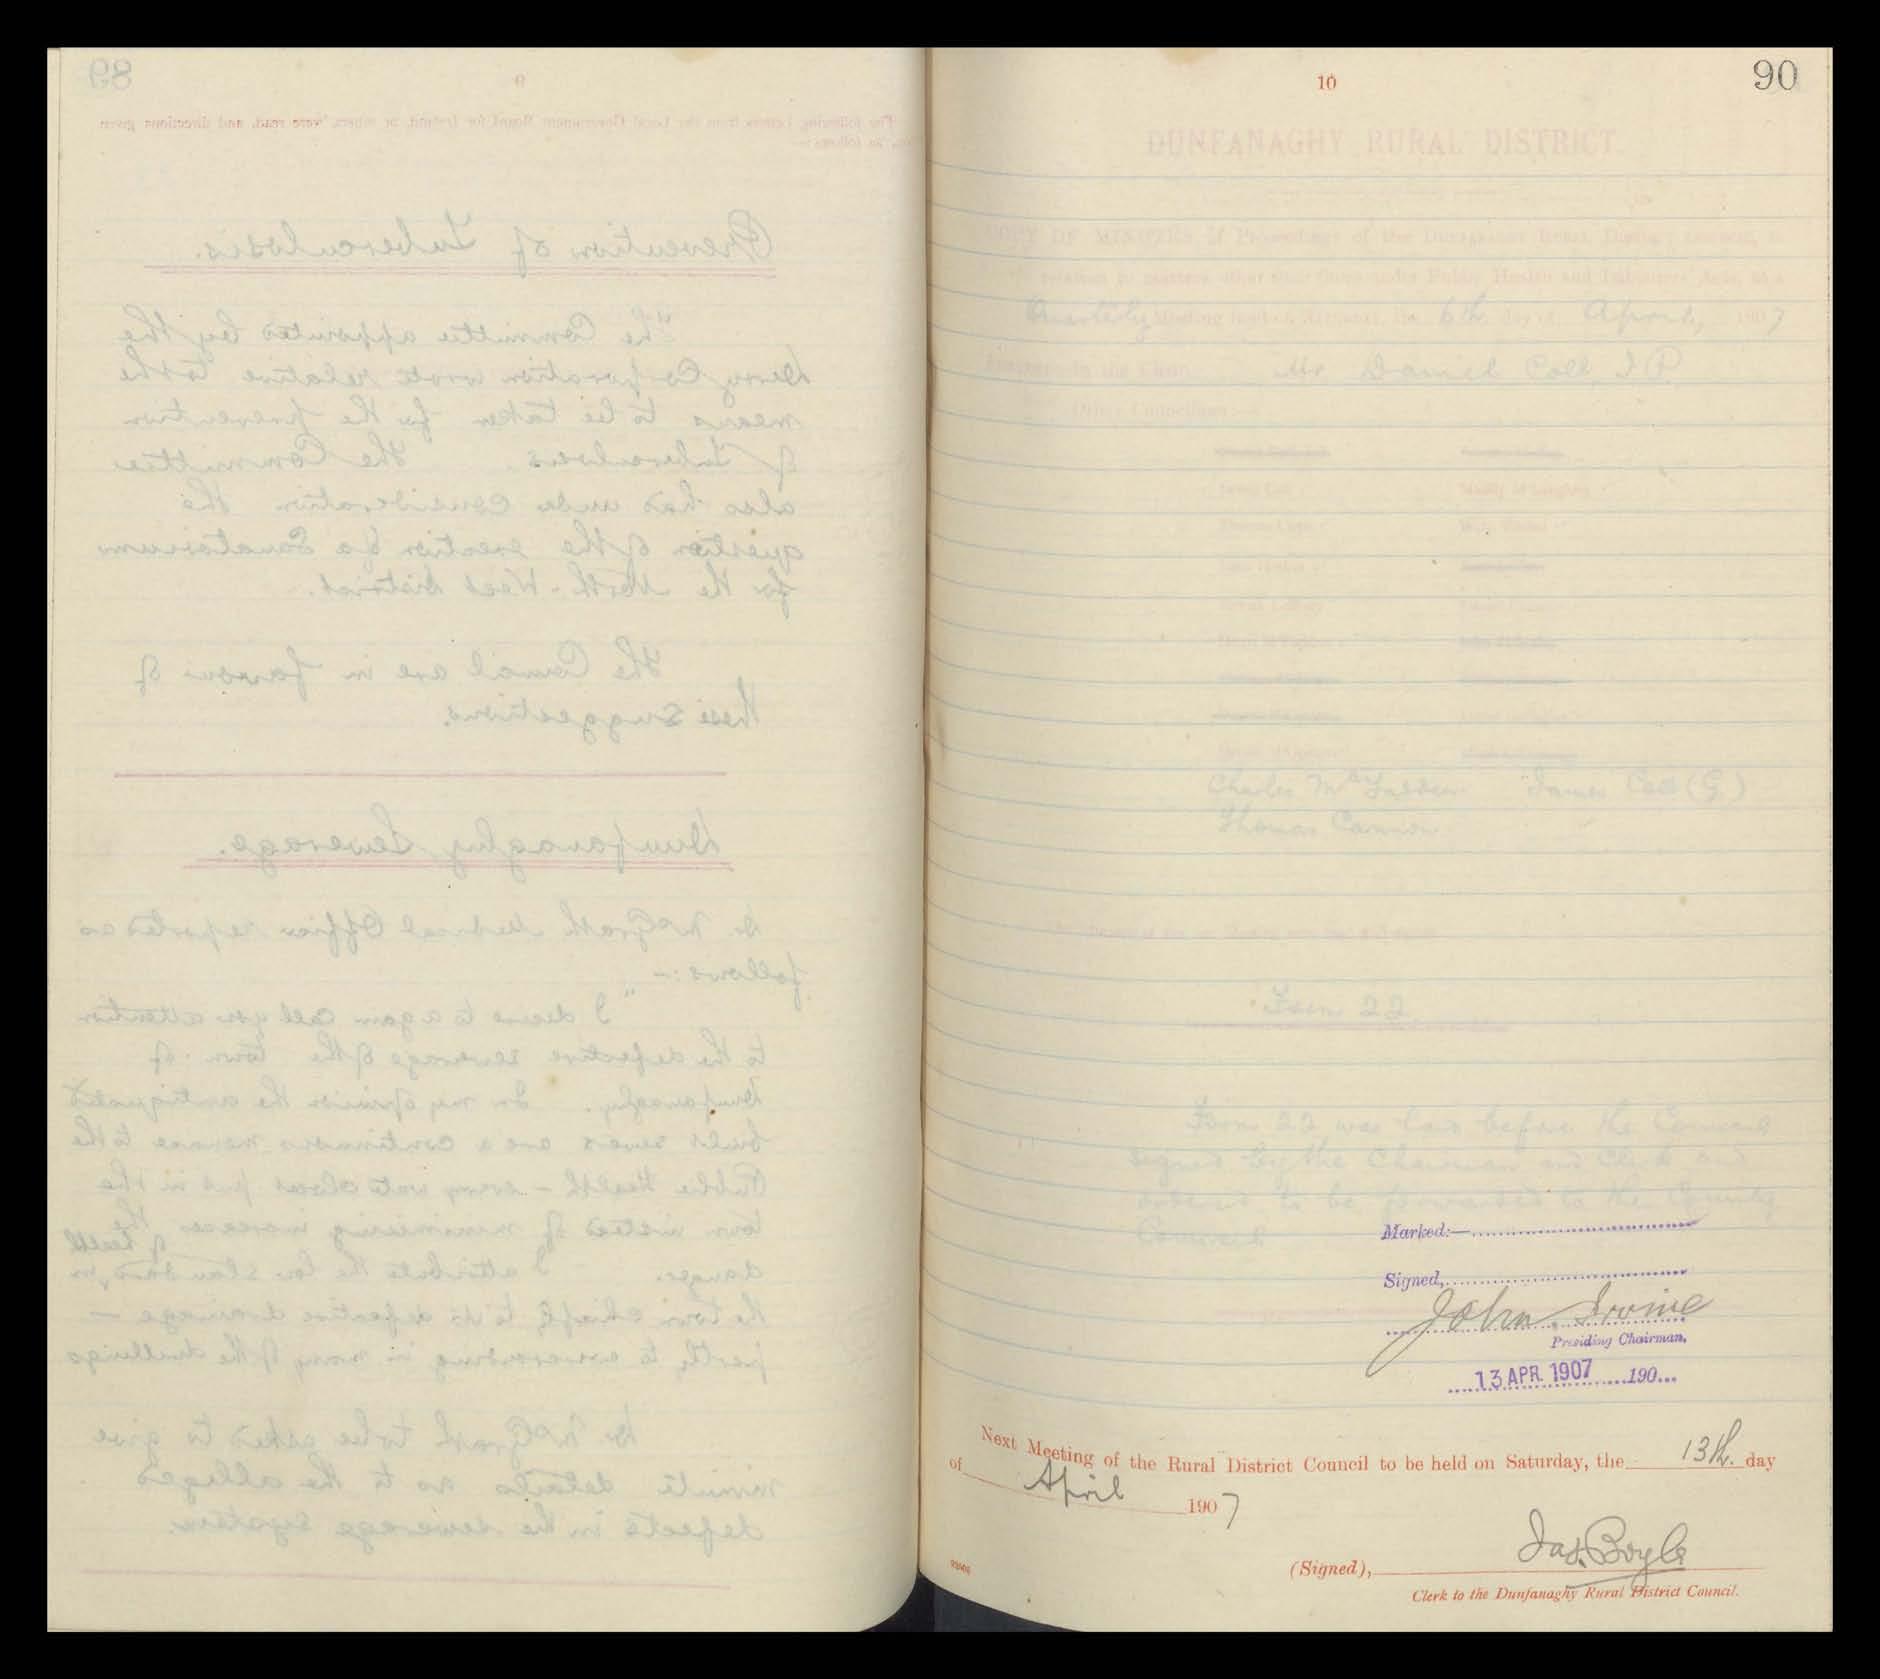 89
9
The following Letters from the Local Government Board for Ireland, or others, were read, and directions given
as follows :—
Prevention of Tuberculosis.
The Committee appointed by the
Derry Corporation wrote relative to the
means to be taken for the prevention
of Tuberculosis. The Committee
also has under consideration the
question of the erection of a Sanatorium
for the North-West District.
The Council are in favour of
these suggestions.
Dunfanaghy Sewerage.
Dr. McGrath Medical Officer reported as
follows:—
"I desire to again call your attention
to the defective sewerage of the town of
Dunfanaghy. In my opinion the antiquated
built sewers are a continuous menace to the
Public Health – every water closet put in the
town instead of minimising increases the
danger. I attribute the low standard of health in
the town chiefly to its defective drainage —
partly to overcrowding in many of the dwellings
Dr. McGrath to be asked to give
minute details as to the alleged
defects in the sewerage system.
10
90
DUNFANAGHY RURAL DISTRICT.
COPY OF MINUTES of Proceedings of the Dunfanaghy Rural District Council, in
relation to matters other than those under Public Health and Labourers' Acts, at a
Quarterly Meeting held on Saturday, the 6th day of April, 1907
Present:—In the Chair, Mr Daniel Coll, J.P.
Other Councillors :—
Charles McFadden James Coll (G.)
Thomas Cannon
Form 22
Form 22 was laid before the Council
signed by the Chairman and Clerk and
ordered to be forwarded to the County
Council
Marked:—
Signed,
John Irvine
Presiding Chairman.
13 APR. 1907 190
Next Meeting of the Rural District Council to be held on Saturday, the 13th. day
of April 1907
(Signed), Jas. Boyle
Clerk to the Dunfanaghy Rural District Council.